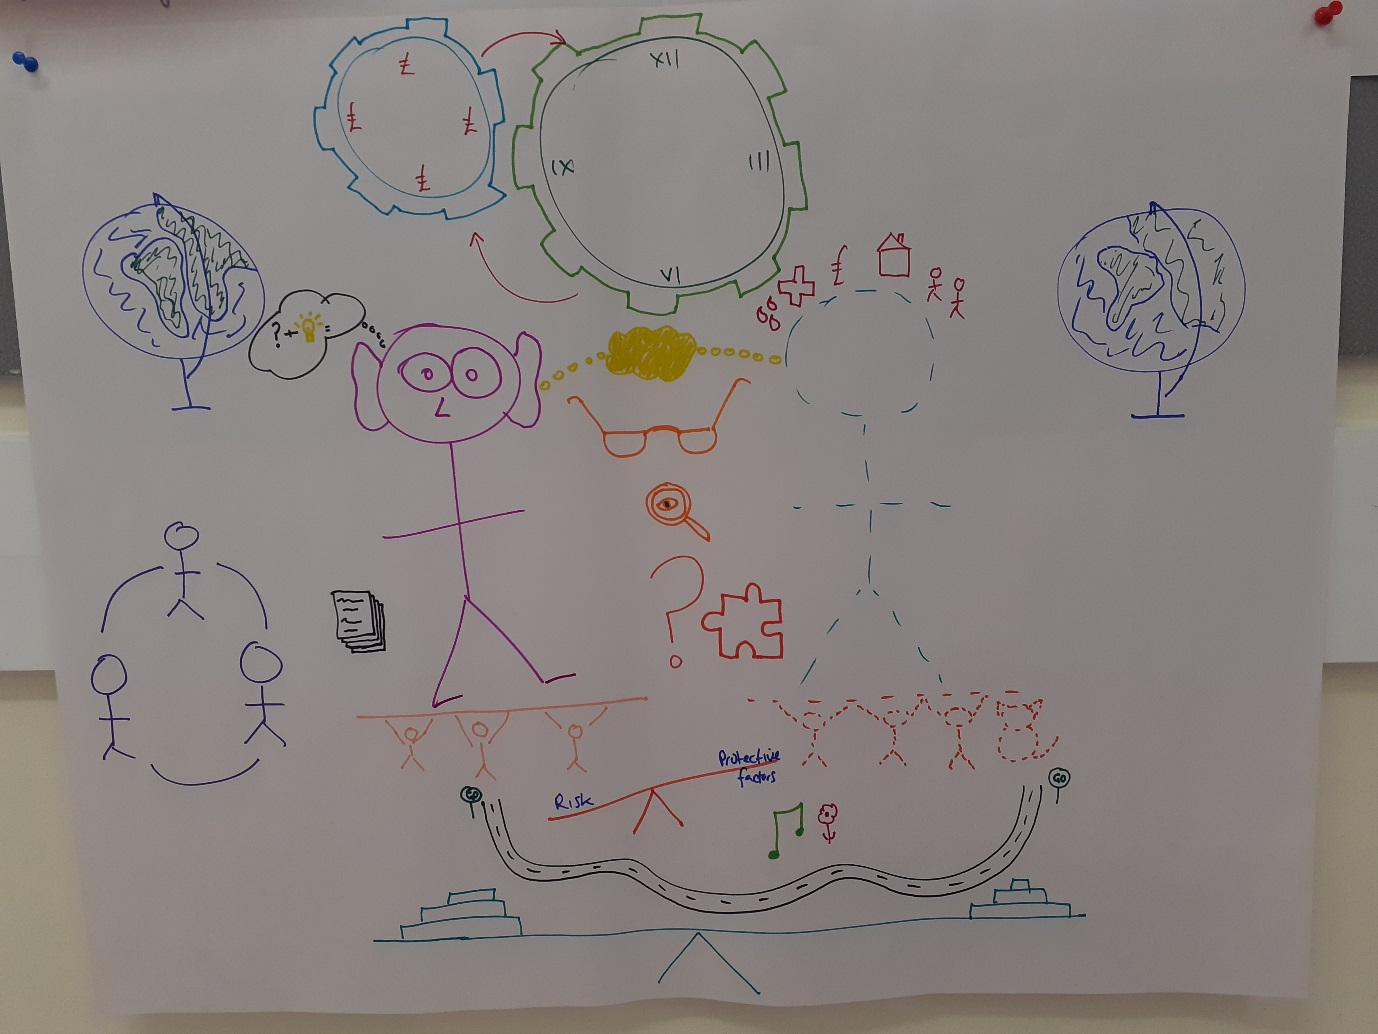 £
£
£
£
XII
III
VI
IX
£
? + =
?
Protective
factors
Risk
GO
GO